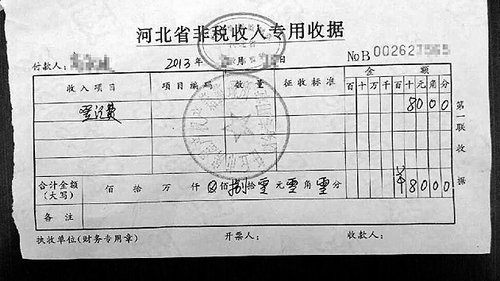 河北省非税收入专用收据
付款人： 2013年 月 日 №B 002627
收入项目 项目编码 数量 征收标准 金额
百十万千百十元角分
登记费 8000
合计金额（大写） 佰 拾 万 仟 ⊗佰捌拾零元零角零分 ¥8000
备注
执收单位(财务专用章) 开票人： 收款人：
第一联收据